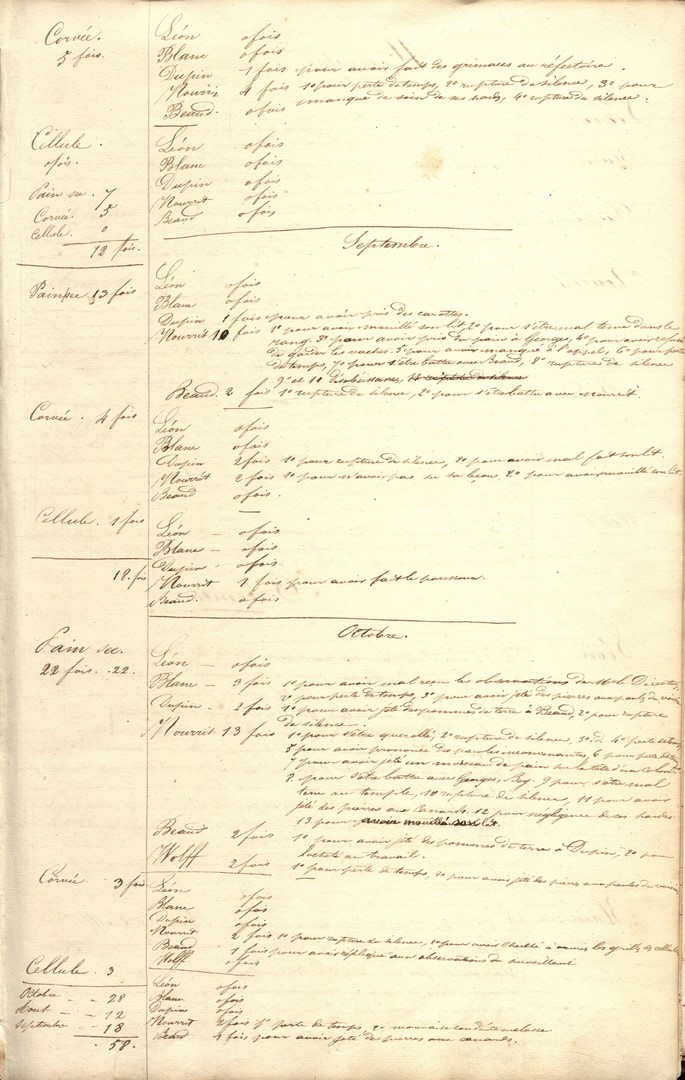 Corvée. Léon 0 fois
5 fois. Blanc 0 fois
Dupin 1 fois pour avoir fait des grimaces au réfectoire.
Nourrit 4 fois 1º pour perte de temps, 2º rupture de silence, 3º pour
manque de soin de ses hardes, 4º rupture de silence.
Beaud. 0 fois
Cellule. Léon 0 fois
0 fois. Blanc 0 fois
Dupin 0 fois
Pain sec. 7 Nourrit 0 fois
Corvée. 5 Beaud 0 fois
Cellule. 0
12 fois.
Septembre.
Pain sec 13 fois Léon 0 fois
Blanc 0 fois
Dupin 1 fois pour avoir pris des carottes.
Nourrit 10 fois 1º pour avoir mouillé son lit, 2º pour s'être mal tenu dans le
rang, 3º pour avoir pris du pain à Georges, 4º pour avoir refusé
de garder les vaches. 5º pour avoir manqué à l'appel, 6º pour perte
de temps, 7º pour s'être battu avec Beaud, 8º ruptures de silence
9º et 10 désobéissance, 11 rupture de silence
Beaud. 2 fois 1º rupture de silence, 2º pour s'être battu avec Nourrit.
Corvée. 4 fois Léon 0 fois
Blanc 0 fois
Dupin 2 fois 1º pour rupture de silence, 2º pour avoir mal fait son lit.
Nourrit 2 fois 1º pour n'avoir pas su sa leçon, 2º pour avoir mouillé son lit.
Beaud 0 fois.
Cellule. 1 fois Léon - 0 fois
Blanc - 0 fois
Dupin - 0 fois
18. fois Nourrit 1 fois pour avoir fait le
Beaud. 0 fois
Octobre.
Pain sec. Léon - 0 fois
22 fois. - 22. Blanc - 3 fois 1º pour avoir mal reçu les observations de M. le Directeur,
2º pour perte de temps, 3º pour avoir jeté des pierres aux
Dupin - 2 fois 1º pour avoir jeté des pommes de terre à Beaud, 2º pour rupture
de silence.
Nourrit 13 fois 1º pour s'être querellé, 2º rupture de silence, 3º d. 4º perte de temps
5 pour avoir prononcé des paroles inconvenantes, 6 pour perte de temps
7 pour avoir jeté un morceau de pain sur la tête d'un colon.
8. pour s'être battu avec Georges, Rey. 9 pour s'être mal
tenu au temple, 10 rupture de silence, 11 pour avoir
jeté des pierres aux canards. 12 pour négligence de ses hardes
13 pour avoir mouillé son lit.
Beaud 2 fois 1º pour avoir jeté des pommes de terre à Dupin, 2º pour
au travail.
Wolff 2 fois 1º pour perte de temps, 2º pour avoir jeté des pierres aux
Corvée 3 fois Léon 0 fois
Blanc 0 fois
Dupin 0 fois
Nourrit 2 fois 1º pour rupture de silence, 2º pour avoir cherché à les grilles des cellules
Beaud 1 fois pour avoir répliqué aux observations du surveillant
Wolff 0 fois
Cellule. 3 Léon 0 fois
Octobre - - 28 Blanc 0 fois
Août - - 12 Dupin 0 fois
Septembre - 18 Nourrit 2 fois 1º perte de temps, 2º mauvaise conduite
. 58. Beaud 1 fois pour avoir jeté des pierres aux canards.